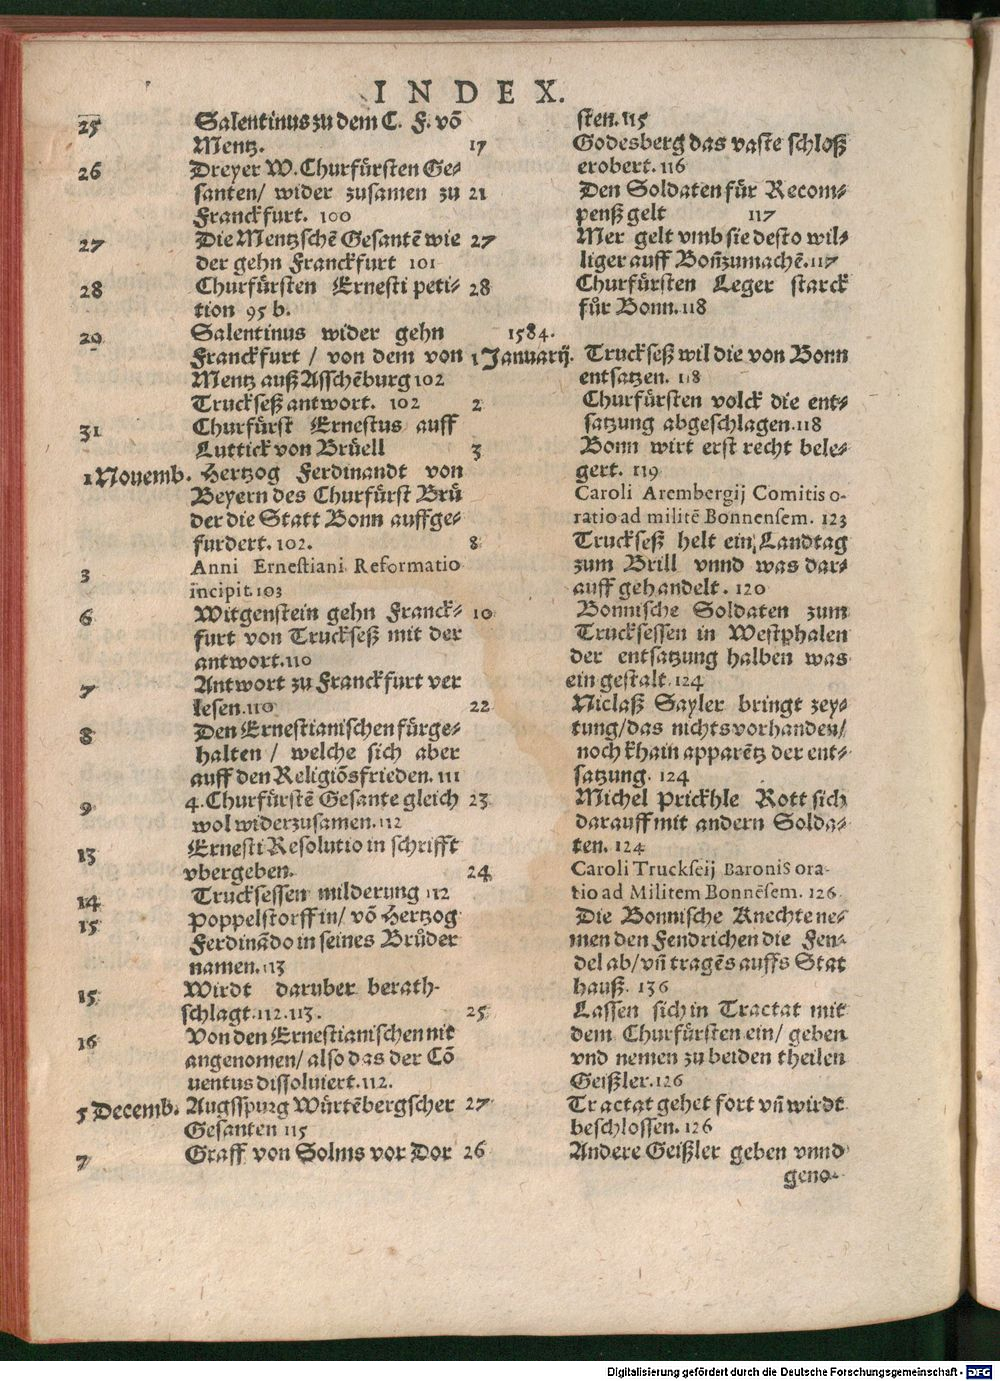 INDEX.
25 Salentinus zu dem C. F. võ
Mentz. 17
26 Dreyer W. Churfürsten Ge-
santen/ wider zusamen zu
Franckfurt. 100
27 Die Mentzschẽ Gesantẽ wie
der gehn Franckfurt 101
28 Churfürsten Ernesti peti-
tion 95 b.
29 Salentinus wider gehn
Franckfurt / von dem von
Mentz auß Asschẽburg 102
Truckseß antwort. 102
31 Churfürst Ernestus auff
Luttick von Brüell
1 Nouemb. Hertzog Ferdinandt von
Beyern des Churfürst Brü
der die Statt Bonn auffge-
furdert. 102.
3 Anni Ernestiani Reformatio
incipit. 103
6 Witgenstein gehn Franck-
furt von Truckseß mit der
antwort. 110
7 Antwort zu Franckfurt ver
lesen. 110
8 Den Ernestianischen fürge-
halten / welche sich aber
auff den Religiõsfrieden. 111
9 4. Churfürstẽ Gesante gleich
wol widerzusamen. 112
13 Ernesti Resolutio in schrifft
vbergeben.
14 Trucksessen milderung 112
15 Poppelstorff in/ võ Hertzog
Ferdinãdo in seines Brüder
namen. 113
15 Wirdt daruber berath-
schlagt. 112. 113.
16 Von den Ernestianischen nit
angenomen/ also das der Cõ
uentus dissoluiert. 112.
5 Decemb. Augsspurg Würtẽbergscher
Gesanten 115
7 Graff von Solms vor Dor
sten. 115
Godesberg das vaste schloß
erobert. 116
21 Den Soldaten für Recom-
penß gelt 117
27 Mer gelt vmb sie desto wil-
liger auff Boñzumachẽ. 117
28 Churfürsten Leger starck
für Bonn. 118
1584.
1 Januarij. Truckseß wil die von Bonn
entsatzen. 118
2 Churfürsten volck die ent-
satzung abgeschlagen. 118
3 Bonn wirt erst recht bele-
gert. 119
Caroli Arembergij Comitis o-
ratio ad militẽ Bonnensem. 123
8 Truckseß helt ein Landtag
zum Brill vnnd was dar-
auff gehandelt. 120
10 Bonnische Soldaten zum
Trucksessen in Westphalen
der entsatzung halben was
ein gestalt. 124
22 Niclaß Sayler bringt zey-
tung/ das nichts vorhanden/
noch khain apparẽtz der ent-
satzung. 124
23 Michel Prickhle Rott sich
darauff mit andern Solda-
ten. 124
24 Caroli Truckseij Baronis ora-
tio ad Militem Bonnẽsem. 126
Die Bonnische Knechte ne-
men den Fendrichen die Fen-
del ab/ vñ tragẽs auffs Stat
hauß. 136
25 Lassen sich in Tractat mit
dem Churfürsten ein/ geben
vnd nemen zu beiden theilen
Geißler. 126
27 Tractat gehet fort vñ wirdt
beschlossen. 126
26 Andere Geißler geben vnnd
geno-
Digitalisierung gefördert durch die Deutsche Forschungsgemeinschaft - DFG